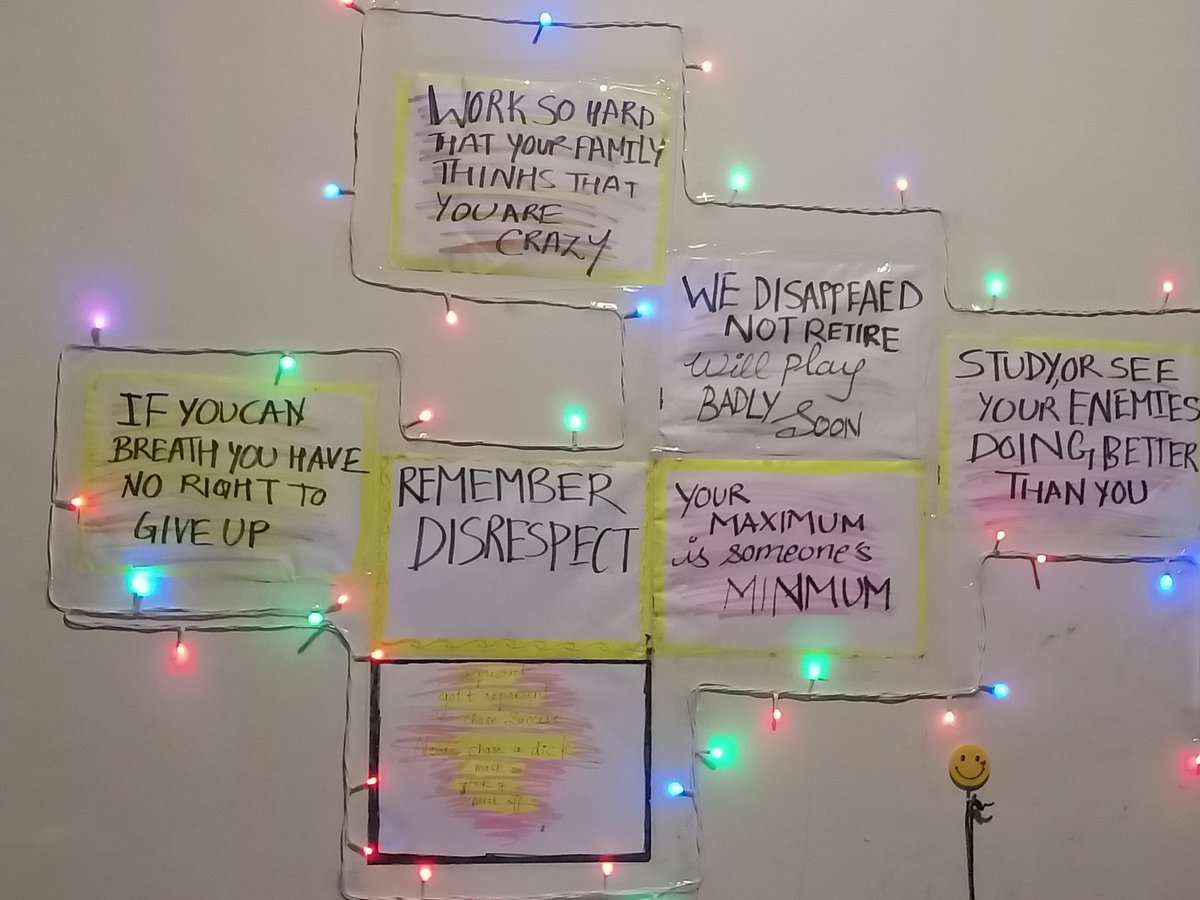 WORK SO HARD
THAT YOUR FAMILY
THINHS THAT
YOU ARE
CRAZY
WE DISAPPEAED
NOT RETIRE
will play
BADLY SOON
STUDY, OR SEE
YOUR ENEMIES
DOING, BETTER
THAN YOU
IF YOU CAN
BREATH YOU HAVE
NO RIGHT TO
GIVE UP
REMEMBER
DISRESPECT
YOUR
MAXIMUM
is someone's
MINMUM
represent
gott represent
chase Success
Never chase a dick
mask on
mask off